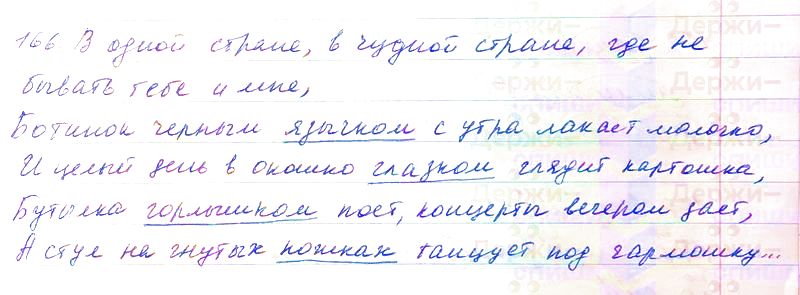 166. В одной стране, в чудной стране, где не
бывать тебе и мне,
Ботинок черным язычком с утра лакает молочко,
И целый день в окошко глазком глядит картошка,
Бутылка горлышком поет, концерты вечером дает,
А стул на гнутых ножках танцует под гармошку...